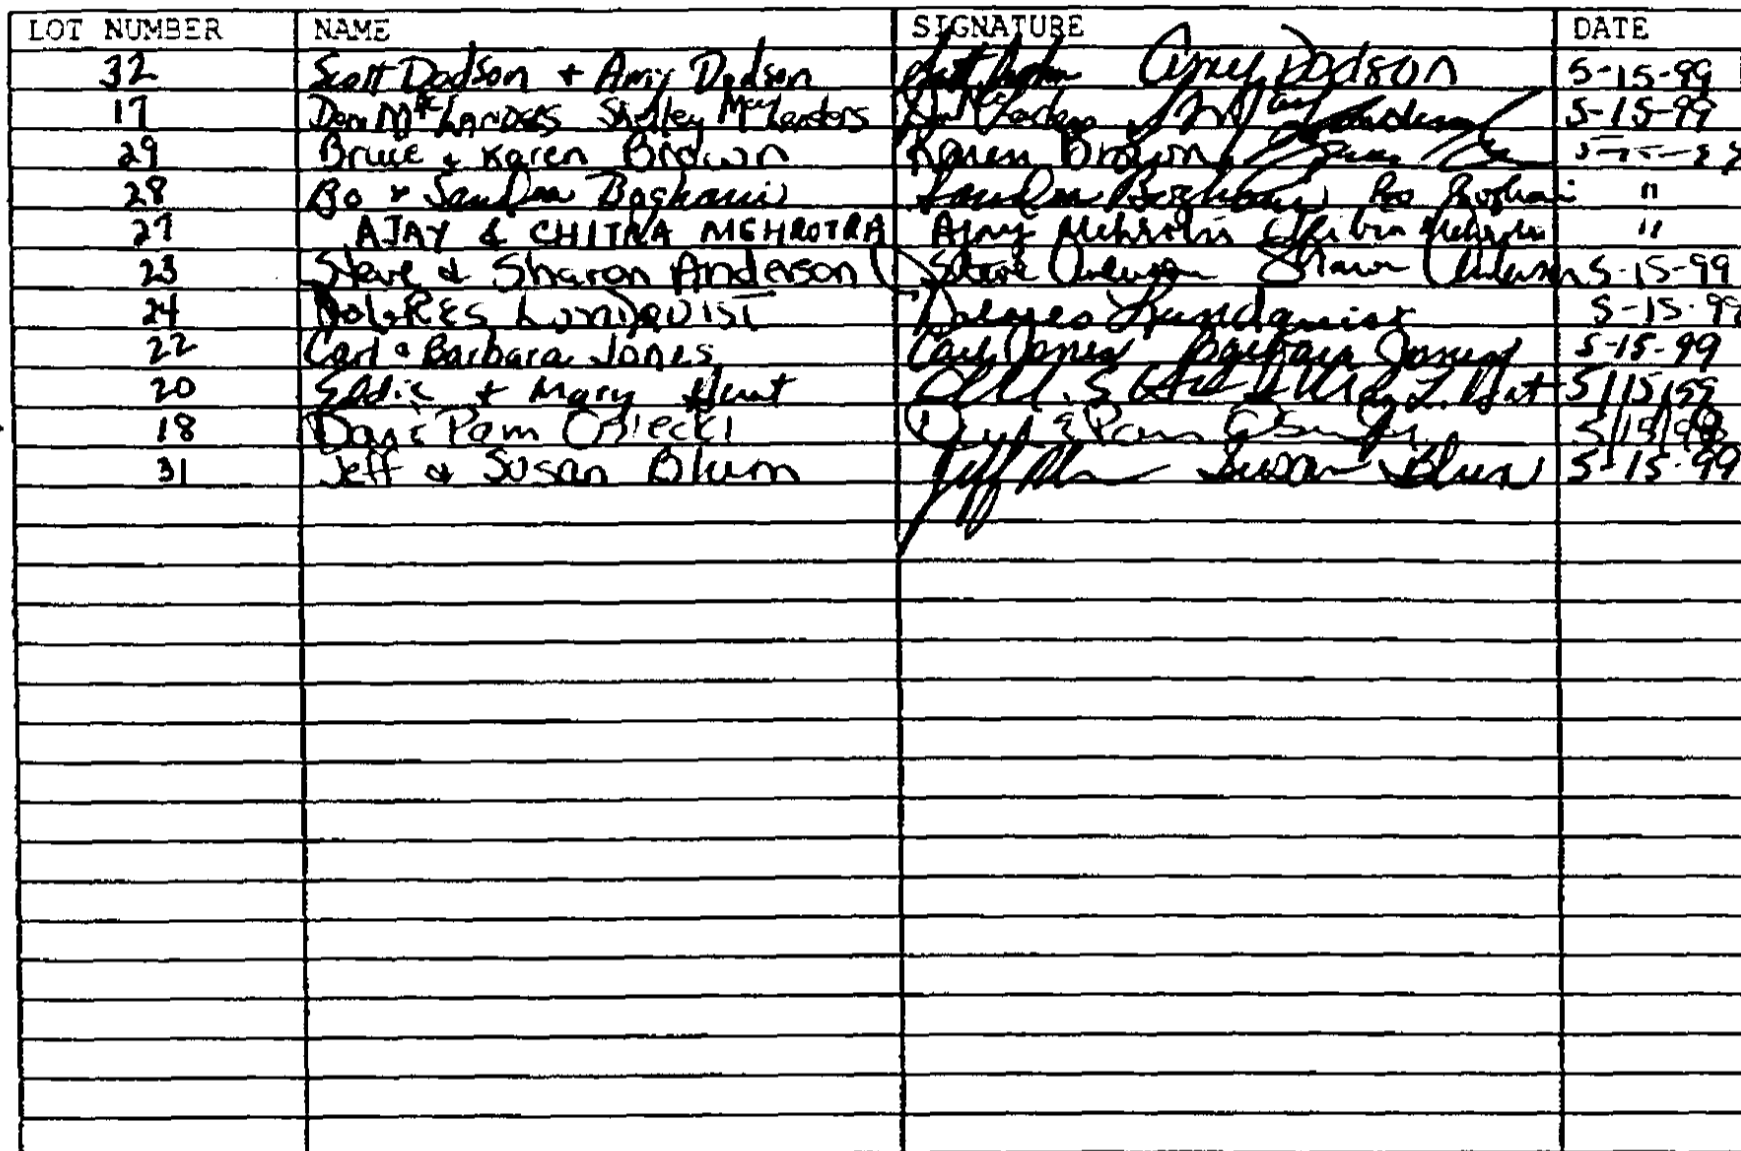 LOT NUMBER NAME SIGNATURE DATE
32 Scott Dodson + Amy Dodson Amy Dodson 5-15-99
17 Don Shelley 5-15-99
29 Bruce & Karen Brown Karen Brown
28 Bo & Sandra Boghani Sandra Boghani Bo Boghani "
27 AJAY & CHITRA MEHROTRA Ajay Mehrotra Chitra Mehrotra "
23 Steve & Sharon Anderson Steve Anderson Sharon Anderson 5-15-99
24 DOLORES LUNDQUIST Dolores Lundquist 5-15-99
22 Carl & Barbara Jones Carl Jones Barbara Jones 5-15-99
20 Eddie & Mary Hunt 5/15/99
18 Pam & Pam
31 Jeff & Susan Blum Jeff Susan Blum 5-15-99